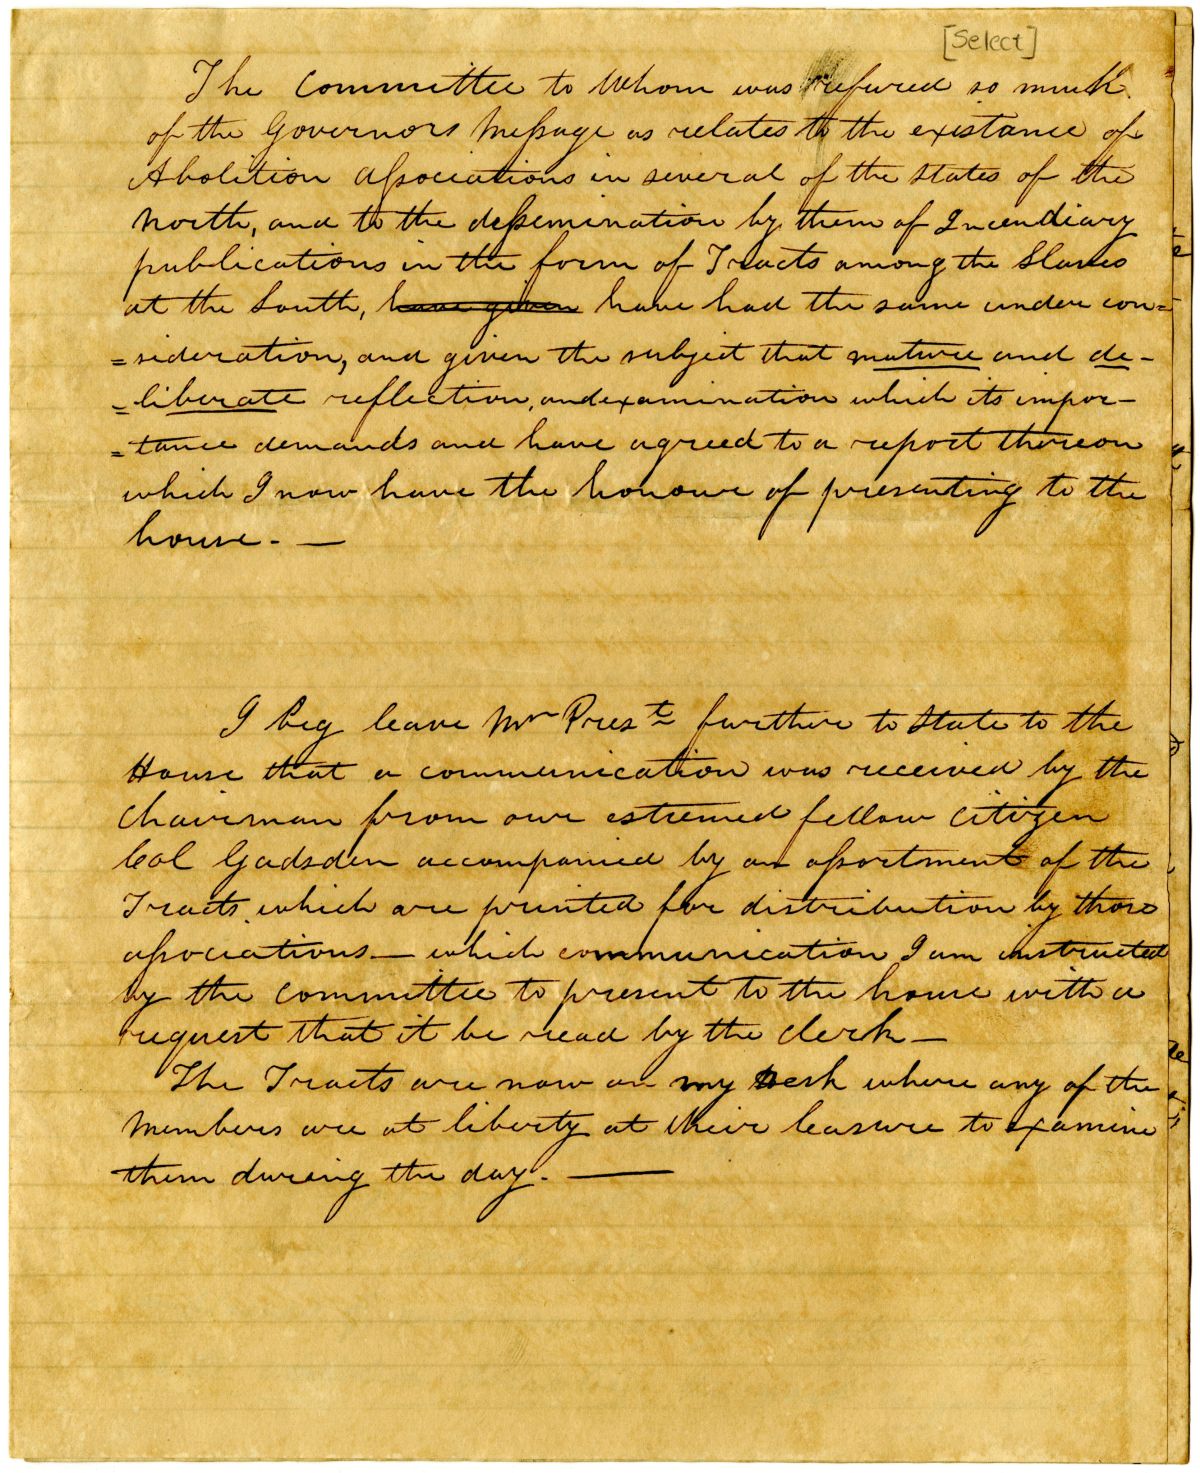 [Select]
The Committee to Whom was refered so much
of the Governors Message as relates to the existance of
Abolition associations in several of the states of the
North, and to the dessemination by them of Incendiary
publications in the form of Tracts among the Slaves
at the South, have given have had the same under con=
=sideration, and given the subject that mature and de-
=liberate reflection, and examination which its impor-
=tance demands and have agreed to a report thereon
which I now have the honour of presenting to the
house. —
I beg leave Mr Prest further to State to the
House that a communication was received by the
Chairman from our estemed fellow Citizen
Col Gadsden accompanied by an assortment of the
Tracts which are printed for distribution by those
associations — which communication I am instructed
by the Committee to present to the house with a
request that it be read by the Clerk —
The Tracts are now on my Desk where any of the
Members are at liberty at their leasure to examine
them during the day. —